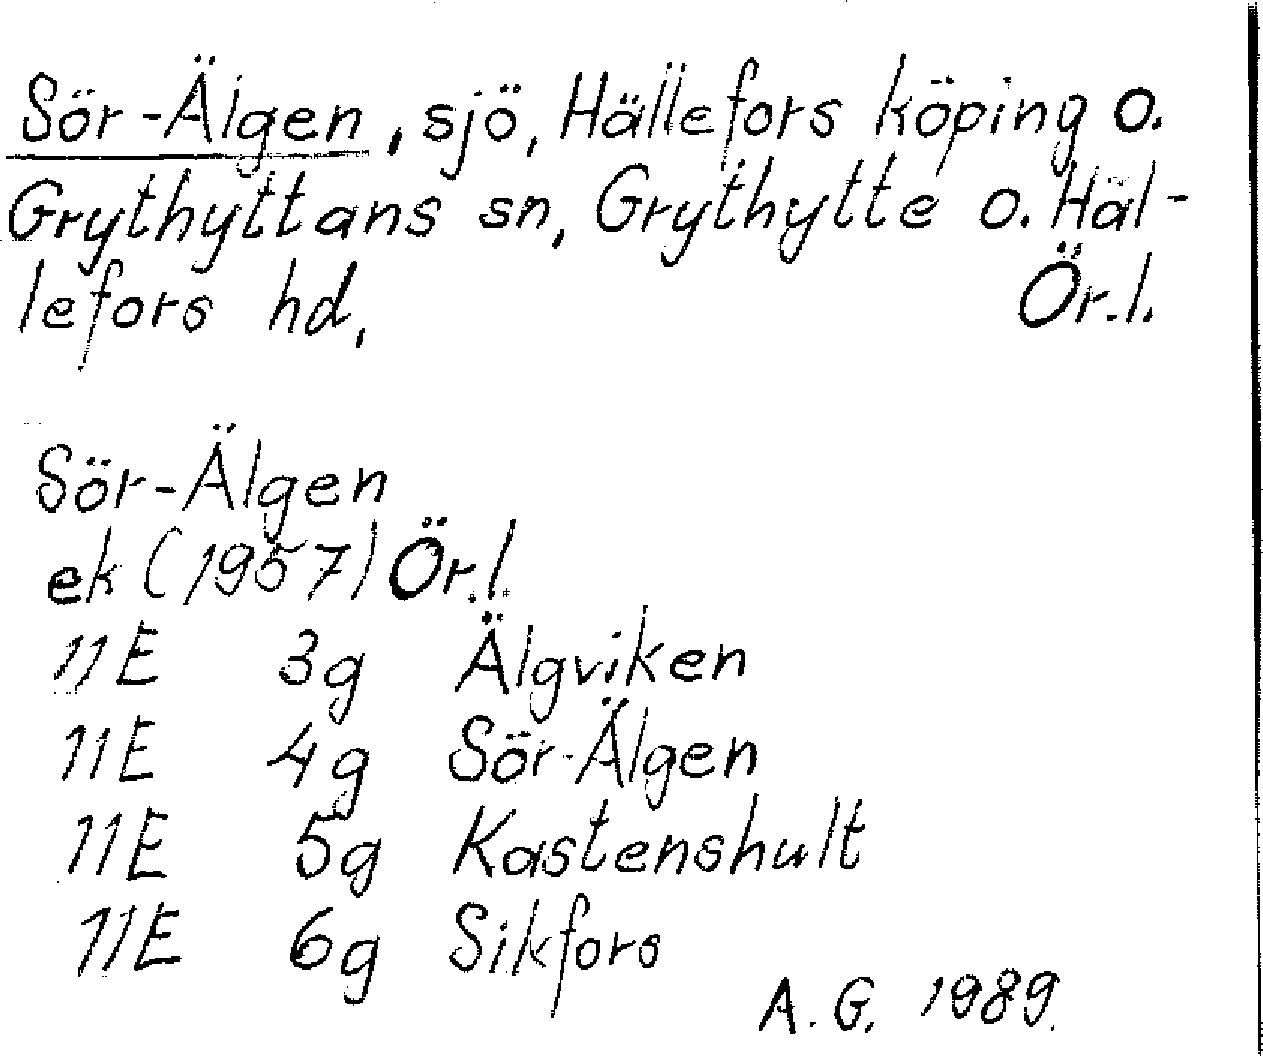 Sör-Älgen, sjö, Hällefors köping o.
Grythyttans sn, Grythytte o. Häl-
lefors hd, Ör.l.
Sör-Älgen
ek (1957) Ör.l.
11E 3g Älgviken
11E 4g Sör-Älgen
11E 5g Kastenshult
11E 6g Sikfors
A.G. 1989.